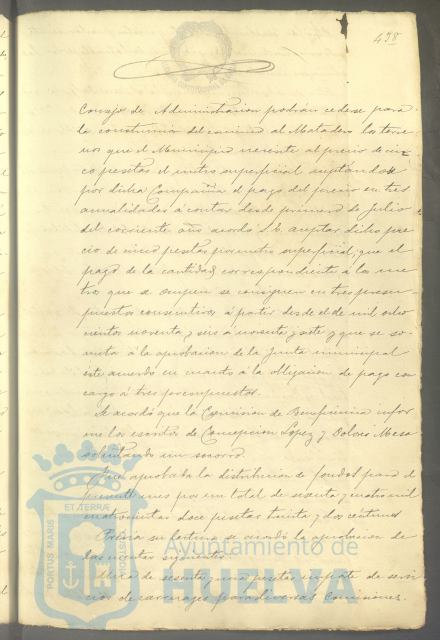 438
Consejo de Administracion podrán cederse para
la construccion del camino al Matadero los terre
nos que el Municipio necesite al precio de cin
co pesetas el metro superficial aceptándose
por dicha Compañia el pago del precio en tres
anualidades á contar desde primero de Julio
del corriente año acordó S.E. aceptar dicho pre
cio de cinco pesetas por metro superficial, que el
pago de la cantidad correspondiente á los me
tros que se ocupen se consignen en tres presu
puestos consecutivos á partir desde el de mil ocho
cientos noventa y seis á noventa y siete y que se so
meta á la aprobacion de la Junta municipal
éste acuerdo en cuanto á la obligacion de pago con
cargo á tres presupuestos.
Se acordó que la Comision de Beneficencia infor
me los escritos de Concepcion Lopez y Dolores Mesa
solicitando un socorro.
Fué aprobada la distribucion de fondos para el
presente mes por un total de sesenta y cuatro mil
cuatrocientas doce pesetas treinta y dos céntimos
Prévia su lectura se acordó la aprobacion de
las cuentas siguientes.
Una de sesenta y una pesetas importe de servi
cios de carruages para diversas Comisiones.
PORTUS MARIS
ET TERRÆ
CUSTODIA
Ayuntamiento de
HUELVA